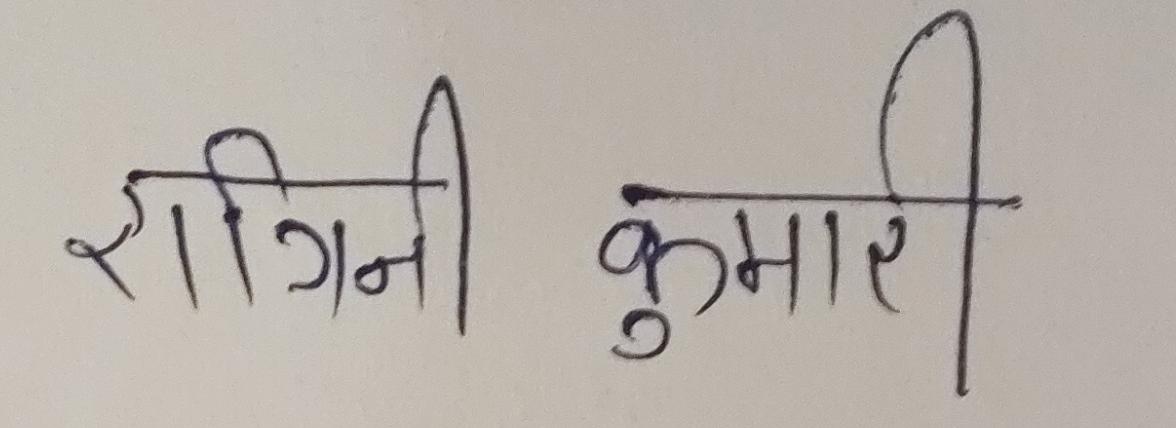 रागिनी कुमारी